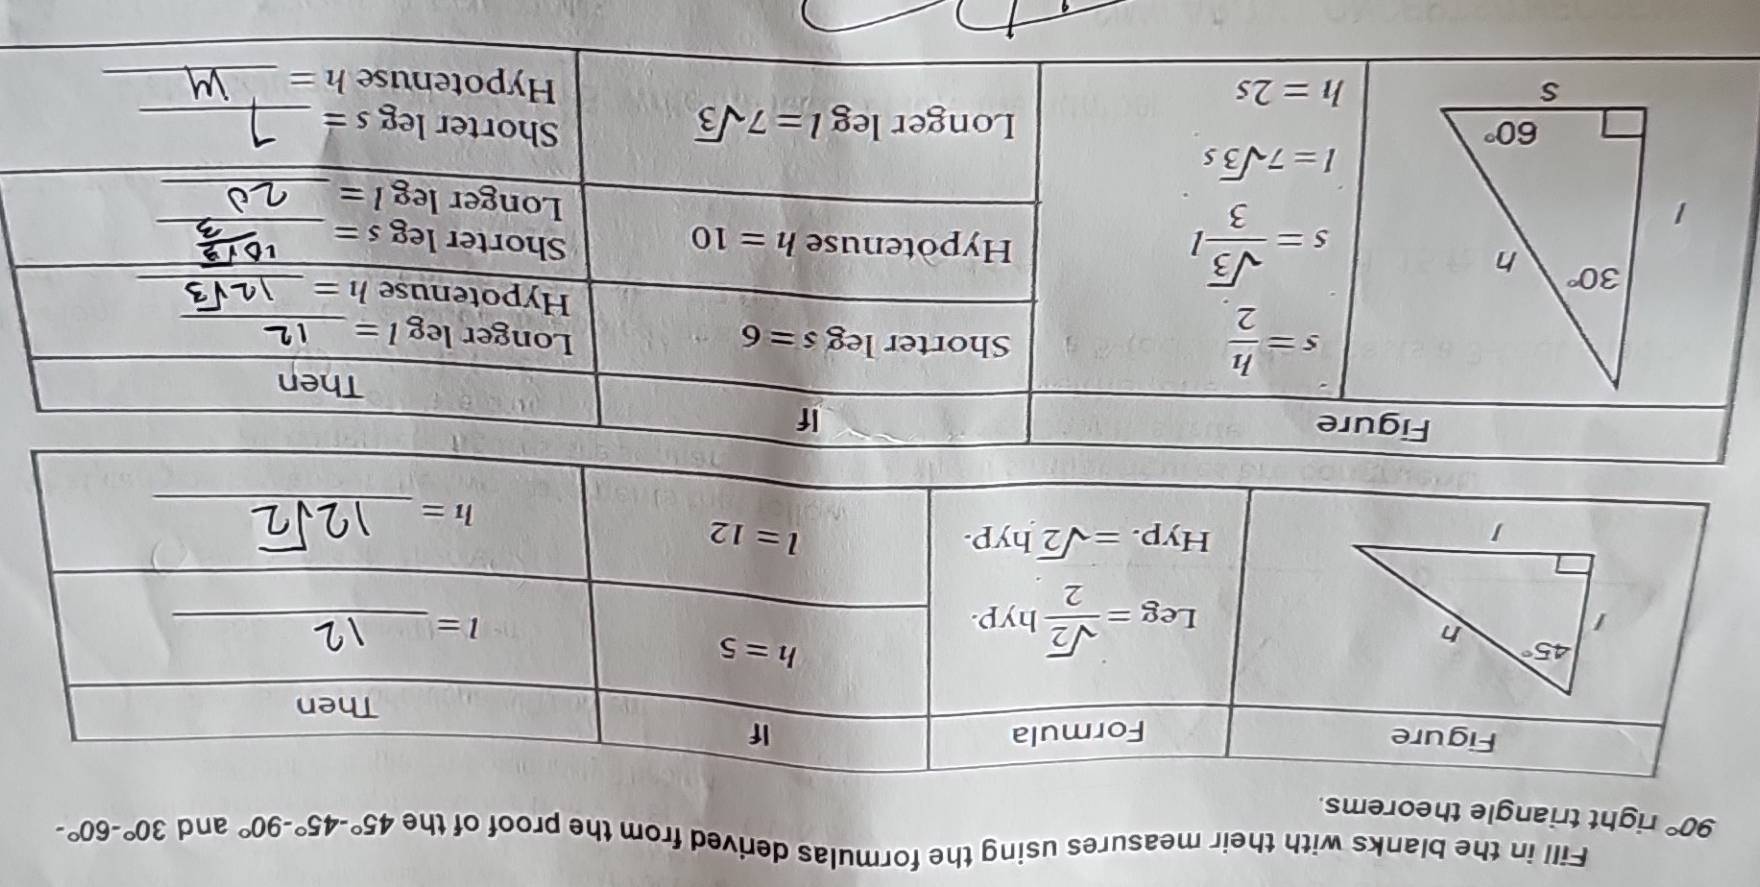 Fill in the blanks with their measures using the formulas derived from the proof of the 45°-45°-90° and 30°-60°-
90° right triangle theorems.
Figure Formula If Then
45°
l
h
l
Leg = √2/2 hyp.
Hyp. = √2 hyp.
h = 5 l = 12
l = 12 h = 12√2
Figure If Then
30°
h
l
60°
s
s = h/2
s = √3/3 l
l = 7√3 s
h = 2s
Shorter leg s = 6
Longer leg l = 12
Hypotenuse h = 12√3
Hypotenuse h = 10
Shorter leg s = 10√3/3
Longer leg l = 20
Longer leg l = 7√3
Shorter leg s = 7
Hypotenuse h = 14